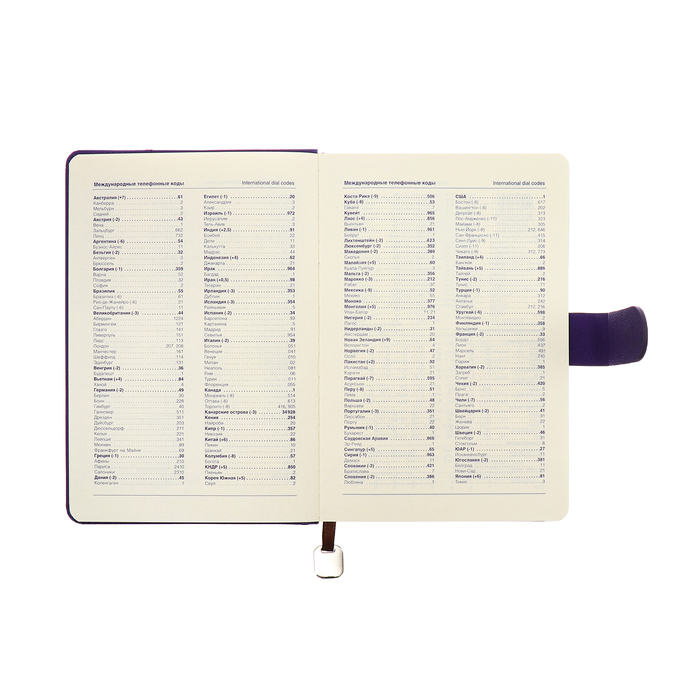 Международные телефонные коды
International dial codes
Австралия (+7) 61
Канберра 2
Мельбурн 3
Сидней 2
Австрия (-2) 43
Вена
Зальцбург 662
Линц 732
Аргентина (-6) 54
Буэнос-Айрес 11
Бельгия (-2) 32
Антверпен 3
Брюссель 2
Болгария (-1) 359
Варна 52
Пловдив 32
София 2
Бразилия 55
Бразилиа (-6) 61
Рио-де-Жанейро (-6) 21
Сан-Паулу (-6) 11
Великобритания (-3) 44
Абердин 1224
Бирмингем 121
Глазго 141
Ливерпуль 151
Лидс 113
Лондон 207, 208
Манчестер 161
Шеффилд 114
Эдинбург 131
Венгрия (-2) 36
Будапешт 1
Вьетнам (+4) 84
Ханой 4
Германия (-2) 49
Берлин 30
Бонн 228
Гамбург 40
Ганновер 511
Дрезден 351
Дуйсбург 203
Дюссельдорф 211
Кельн 221
Лейпциг 341
Мюнхен 89
Франкфурт на Майне 69
Греция (-1) 30
Афины 210
Лариса 2410
Салоники 2310
Дания (-2) 45
Копенгаген
Египет (-1) 20
Александрия 3
Каир 2
Израиль (-1) 972
Иерусалим 2
Тель-Авив 3
Индия (+2,5) 91
Бомбей 22
Дели 11
Калькутта 33
Мадрас 44
Индонезия (+4) 62
Джакарта 21
Ирак 964
Багдад 1
Иран (+0,5) 98
Тегеран 21
Ирландия (-3) 353
Дублин 1
Исландия (-3) 354
Рейкьявик
Испания (-2) 34
Барселона 93
Картахена
Мадрид 91
Севилья 954
Италия (-2) 39
Болонья 051
Венеция 041
Генуя 010
Милан 02
Неаполь 081
Рим 06
Турин 011
Флоренция 055
Канада 1
Монреаль (-8) 514
Оттава (-8) 613
Торонто (-8) 416, 905
Канарские острова (-3) 34928
Кения 254
Найроби 20
Кипр (-1) 357
Никосия 22
Китай (+5) 86
Пекин 10
Шанхай 21
Колумбия (-8) 57
Богота 1
КНДР (+5) 850
Пхеньян 2
Корея Южная (+5) 82
Сеул 2
Международные телефонные коды
International dial codes
Коста Рика (-9) 506
Куба (-8) 53
Гавана 7
Кувейт 965
Лаос (+4) 856
Вьентьян 21
Ливан (-1) 961
Бейрут 1
Лихтенштейн (-2) 423
Люксембург (-2) 352
Македония (-2) 389
Скопье 2
Малайзия (+5) 60
Куала-Лумпур 3
Мальта (-2) 356
Марокко (-3) 212
Рабат 37
Мексика (-9) 52
Мехико 55
Монако 377
Монголия (+5) 976
Улан-Батор 11, 21
Нигерия (-2) 234
Лагос 1
Нидерланды (-2) 31
Амстердам 20
Новая Зеландия (+9) 64
Веллингтон 4
Норвегия (-2) 47
Осло
Пакистан (+2) 92
Исламабад 51
Карачи 21
Парагвай (-7) 595
Асунсьон 21
Перу (-8) 51
Лима 1
Польша (-2) 48
Варшава 22
Португалия (-3) 351
Лиссабон 21
Порту 22
Румыния (-1) 40
Бухарест 1
Саудовская Аравия 966
Эр-Рияд 1
Сингапур (+5) 65
Сирия (-1) 963
Дамаск 11
Словакия (-2) 421
Братислава 2
Словения (-2) 386
Любляна 1
США 1
Бостон (-8) 617
Вашингтон (-8) 202
Детройт (-8) 313
Лос-Анджелес (-11) 323
Майами (-8) 305
Нью-Йорк (-8) 212, 646
Сан-Франциско (-11) 415
Сент-Луис (-9) 314
Сиэтл (-11) 206
Чикаго (-9) 312, 773
Таиланд (+4) 66
Бангкок 2
Тайвань (+5) 886
Тайпей 2
Тунис (-2) 216
Тунис 71
Турция (-1) 90
Анкара 312
Анталья 242
Стамбул 212, 216
Уругвай (-6) 598
Монтевидео 2
Финляндия (-1) 358
Хельсинки 9
Франция (-2) 33
Бордо 556
Лион 437
Марсель 491
Ницца 493
Париж 1
Хорватия (-2) 385
Загреб 1
Сплит 21
Чехия (-2) 420
Брно 5
Прага 2
Чили (-7) 56
Сантьяго 2
Швейцария (-2) 41
Берн 31
Женева 22
Цюрих
Швеция (-2) 46
Гетеборг 31
Стокгольм 8
ЮАР (-1) 27
Йоханнесбург 11
Югославия (-2) 381
Белград 11
Нови-Сад 21
Япония (+6) 81
Токио 3